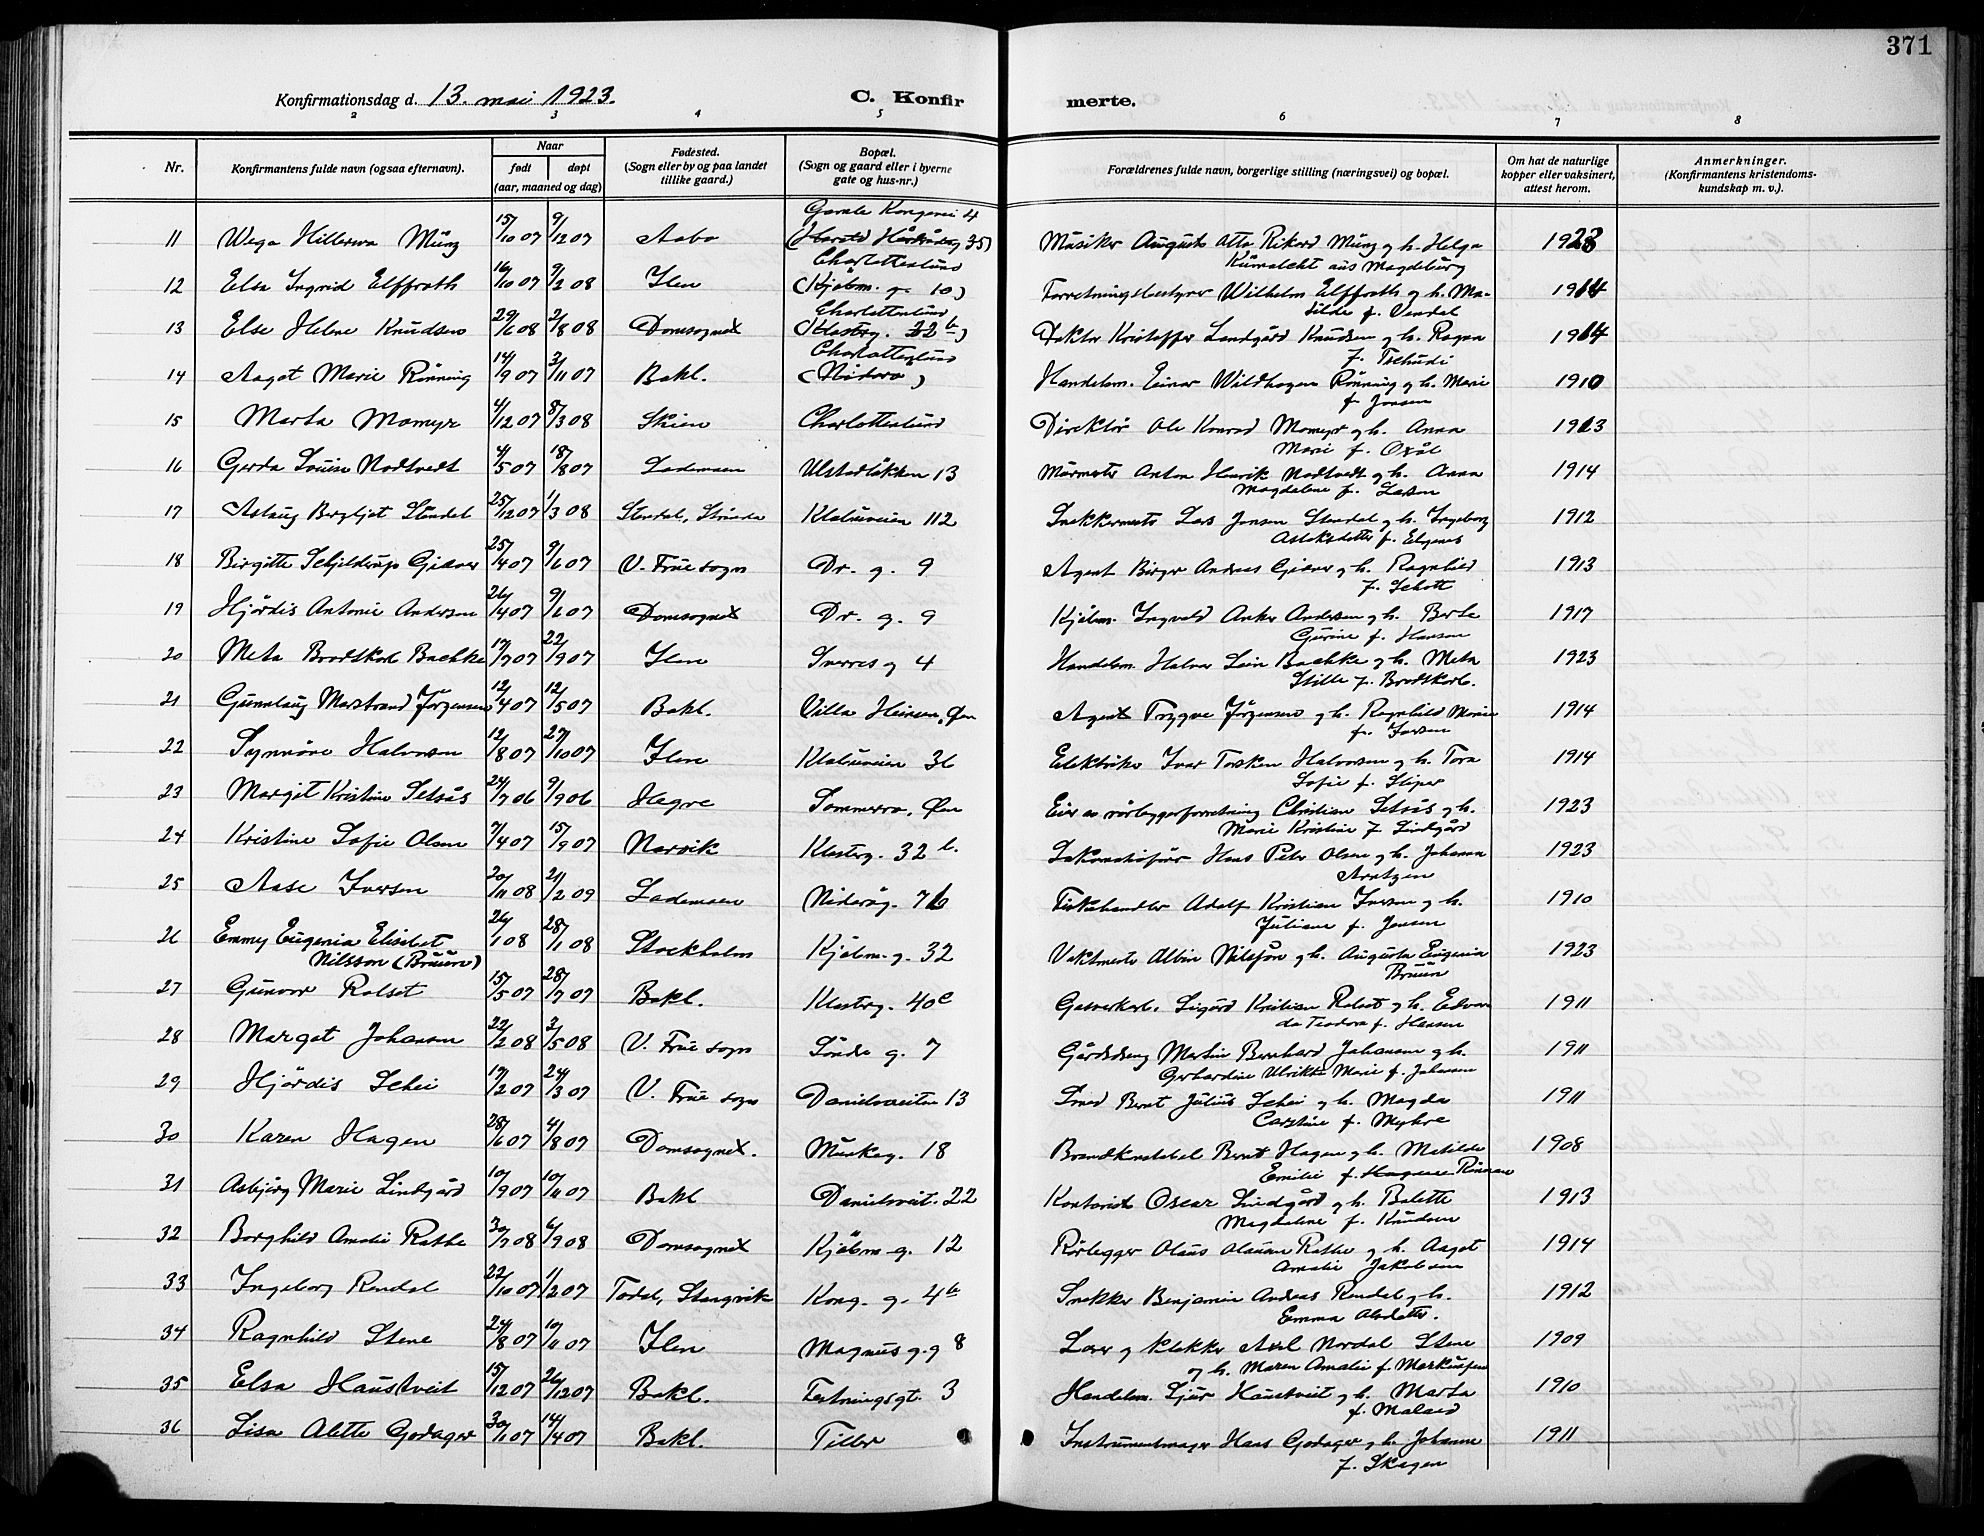 371
Konfirmationsdag d. 13. mai 1923.
C. Konfirmerte.
2 3 4 5 6 7 8
Nr.
Konfirmantens fulde navn (ogsaa efternavn).
Naar
født
døpt
(aar, maaned og dag)
Fødested.
(Sogn eller by og paa landet
tillike gaard.)
Bopæl.
(Sogn og gaard eller i byerne
gate og hus-nr.)
Forældrenes fulde navn, borgerlige stilling (næringsvei) og bopæl.
Om hat de naturlige
kopper eller vaksinert,
attest herom.
Anmerkninger.
(Konfirmantens kristendoms-
kundskap m. v.).
Gamle Kongevei 4
11 Wega Münz 15/10 07 9/12 07 Aabo 35) Musiker August Otto Rikard Münz g. h. Helga 1923
aus Magdeburg
Charlottenlund
12 Elsa Ingrid Elffroth 16/10 07 9/2 08 Ilen (Kjøbm. g. 10) Forretningsbestyrer Wilhelm Elffroth g. h. Ma- 1914
tilde f. Vendel
Charlottenlund
13 Else Helene Knudsen 29/6 08 2/8 08 Domsognet (Klosterg. 22b) Doktor Kristoffer Lundgård Knudsen g. h. Ragna 1914
f. Tschudi
Charlottenlund
14 Aagot Marie Rönning 14/9 07 3/11 07 Bakl. Handelsm. Einar Wildhagen Rönning g. h. Marie 1910
f. Jonsen
15 Marta Momyr 4/12 07 8/3 08 Skien Charlottenlund Direktör Ole Konrad Momyr g. h. Anna 1913
Marie f. Oxål
16 Gerda Louise Nodtvedt 4/5 07 18/8 07 Lademoen Ulstadløkken 13 Murmester Anton Henrik Nodtvedt g. h. Anna 1914
Magdalene f. Larsen
17 Aslaug Bergljot Stendal 25/12 07 1/3 08 Stendal, Strinda Klæbuveien 112 Snekkermester Lars Jonsen Stendal g. h. Ingeborg 1912
18 Birgitte Schjelderup Giæver 25/4 07 9/6 07 V. Frue sogn Dr. g. 9 Agent Birger Andreas Giæver g. h. Ragnhild 1913
f. Schött
19 Hjördis Antonie Andersen 26/4 07 9/6 07 Domsognet Dr. g. 9 Kjøbm. Ingvald Anker Andersen g. h. Berte 1917
Gurine f. Hansen
20 Meta Brodtkorb Bachke 17/7 07 22/9 07 Ilen Sverres g 4 Handelsm. Halvor Lein Bachke g. h. Meta 1923
Stille f. Brodtkorb.
21 Gunnlaug Marstrand Jörgensen 12/4 07 12/5 07 Bakl. Villa Heinsen, Øen Agent Trygve Jörgensen g. h. Ragnhild Marie 1914
f. Iversen
22 Synnöve Halvorsen 12/8 07 27/10 07 Ilen Klæbuveien 36 Elektriker Ivar Torsken Halvorsen g. h. Tora 1914
Sofie f. Sliper
23 Margit Kristine Setsås 24/7 06 9/9 06 Hegre Sommerro, Øen Eier av rörleggerforretning Christian Setsås g. h. 1923
Marie Kristine f. Lindgård
24 Kristine Sofie Olsen 7/4 07 15/9 07 Narvik Klosterg. 32 b. Lokomotivförer Hans Peter Olsen g. h. Johanna 1923
Arntzen
25 Aase Iversen 20/11 08 21/2 09 Lademoen Nidarög. 7b Fiskehandler Adolf Kristian Iversen g. h. 1910
Juliane f. Jensen
26 Emmy Eugenia Elisabet 26/1 08 28/1 08 Stockholm Kjøbm. g. 32 Vaktmester Albin Nilsson g. h. Augusta Eugenia 1923
Nilsson (Bruun) Bruun
27 Gunvor Rolset 15/5 07 28/7 07 Bakl. Klosterg. 40c Gasverkarb. Sigurd Kristian Rolset g. h. Edvar- 1911
da Teodora f. Hansen
28 Margot Johansen 22/2 08 3/5 08 V. Frue sogn Söndre g. 7 Gårdsdreng Martin Bernhard Johansen g. h. 1911
Gerhardine Ulrikke Marie f. Johansen
29 Hjördis Schei 17/2 07 24/3 07 V. Frue sogn Danielsveiten 13 Smed Bernt Julius Schei g. h. Magda 1911
Carstine f. Myhre
30 Karen Hagen 28/6 07 4/8 07 Domsognet. Munkeg. 18 Brandkonstabel Bernt Hagen g. h. Matilde 1908
Emilie f. Hagene Rönnan
31 Asbjörg Marie Lindgård 10/9 07 10/11 07 Bakl Danielsveit. 22 Kontorist Oscar Lindgård g. h. Bolette 1913
Magdalene f. Knudsen
32 Borghild Amalie Rathe 30/7 08 6/9 08 Domsognet Kjøbm. g. 12 Rörlegger Olaus Olausen Rathe g. h. Aagot 1914
Amalie Jakobsen
33 Ingeborg Rendal 22/10 07 1/12 07 Todal, Stangvik Kong. g. 4b Snekker Benjamin Andreas Rendal g. h. 1912
Emma Olsdatter.
34 Ragnhild Stene 24/8 07 10/11 07 Ilen Magnus g. g 8 Lærer g klokker Axel Nordal Stene 1909
og h. Maren Amalie f. Markussen
35 Elsa Haustveit 15/12 07 26/12 07 Bakl. Festningsgt. 3 Handelsm. Sjur Haustveit g. h. Marta 1910
f. Malved
36 Lisa Alette Godager 30/1 07 14/4 07 Bakl. Tiller Instrumentmager Hans Godager g. h. Johanne 1911
f. Skagen